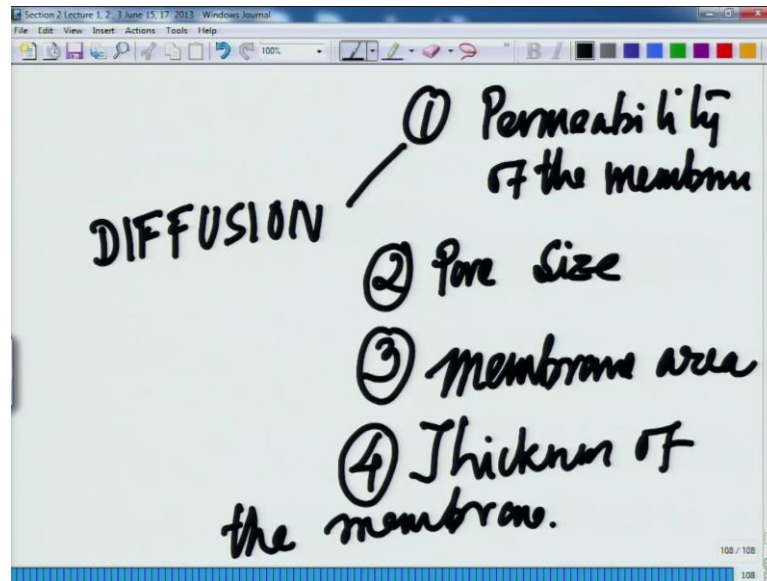 Section 2 Lecture 1, 2 , 3 June 15, 17 2013 - Windows Journal
File Edit View Insert Actions Tools Help
100% B I
① Permeability
of the membrane
DIFFUSION
② Pore Size
③ membrane area
④ Thickness of
the membrane.
108 / 108
108